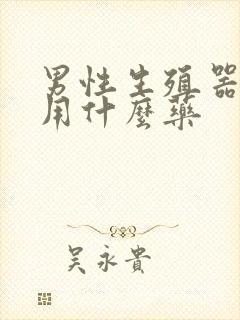 男性生殖器
用什麼藥
吴永貴